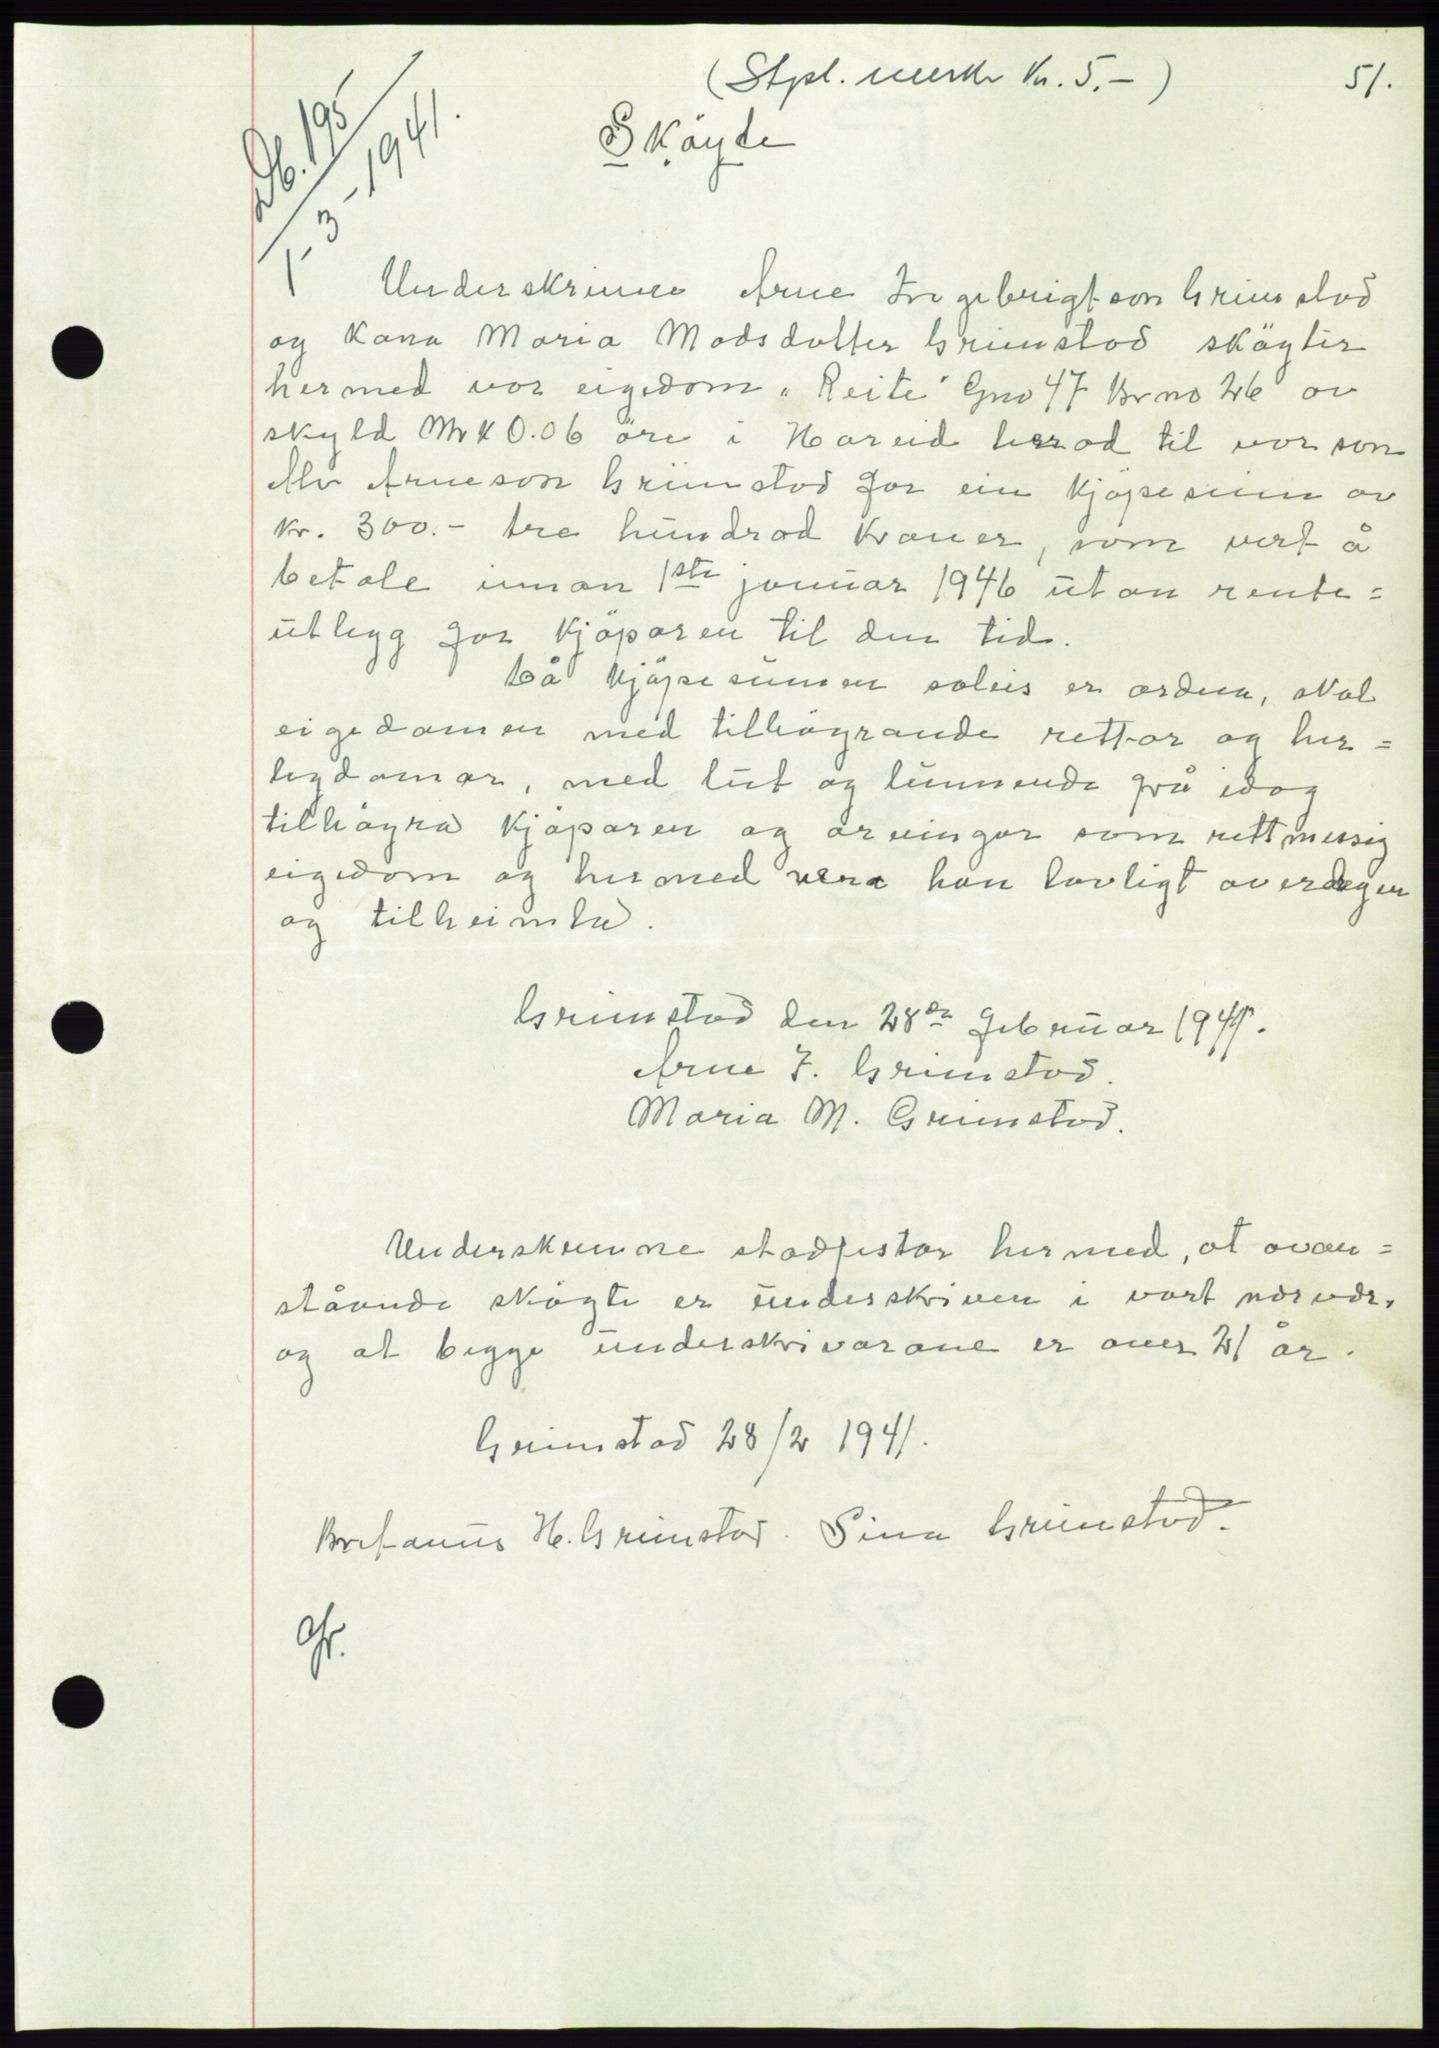 (Stpl. merke Kr. 5.-)
51.
Db. 195
1-3-1941.
Sköyde
Underskrivne Arne Ingebrigtson Grimstad
og Kona Maria Madsdotter Grimstad sköyter
hermed vor eigedom "Reite" Gno 47 Brno 26 av
skyld Mrk 0.06 öre i Hareid herad til vor son
Alv Arneson Grimstad for ein kjöpesum av
kr. 300.- tre hundrad Kroner, som vert å
betale innan 1ste januar 1946 utan rente=
utlegg for kjöparen til den tid.
Då kjöpesummen soleis er ordna, skal
eigedomen med tilhöyrande rettar og her=
legdomar, med lut og lunnende frå idag
tilhöyra kjöparen og arvingar som rettmessig
eigedom og hermed vera han lovligt overdregen
og tilheimla.
Grimstad den 28de februar 1941.
Arne I. Grimstad.
Maria M. Grimstad.
Underskrivne stadfestar hermed, at ovan=
ståande sköyte er underskriven i vort nærvær,
og at begge underskrivarane er over 21 år.
Grimstad 28/2 1941.
H. Grimstad. Sina Grimstad.